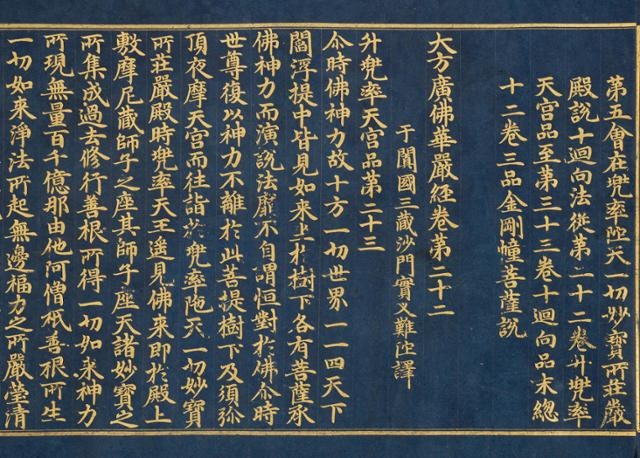 第五會在兜率陁天一切妙寶所莊嚴
殿說十迴向法從第二十二卷升兜率
天宮品至第三十三卷十迴向品末總
十二卷三品金剛幢菩薩說
大方廣佛華嚴経卷第二十二
于闐國三藏沙門實叉難陁譯
升兜率天宮品第二十三
尒時佛神力故十方一切世界一一四天下
閻浮提中皆見如來上於樹下各有菩薩承
佛神力而演說法靡不自謂恒對於佛尒時
世尊復以神力不離於此菩提樹下及須弥
頂夜摩天宮而往詣於兜率陁天一切妙寶
所莊嚴殿時兜率天王遥見佛來即於殿上
敷摩尼藏師子之座其師子座天諸妙寶之
所集成過去修行善根所得一切如來神力
所現無量百千億那由他阿僧祇善根所生
一切如來淨法所起無邊福力之所嚴瑩清